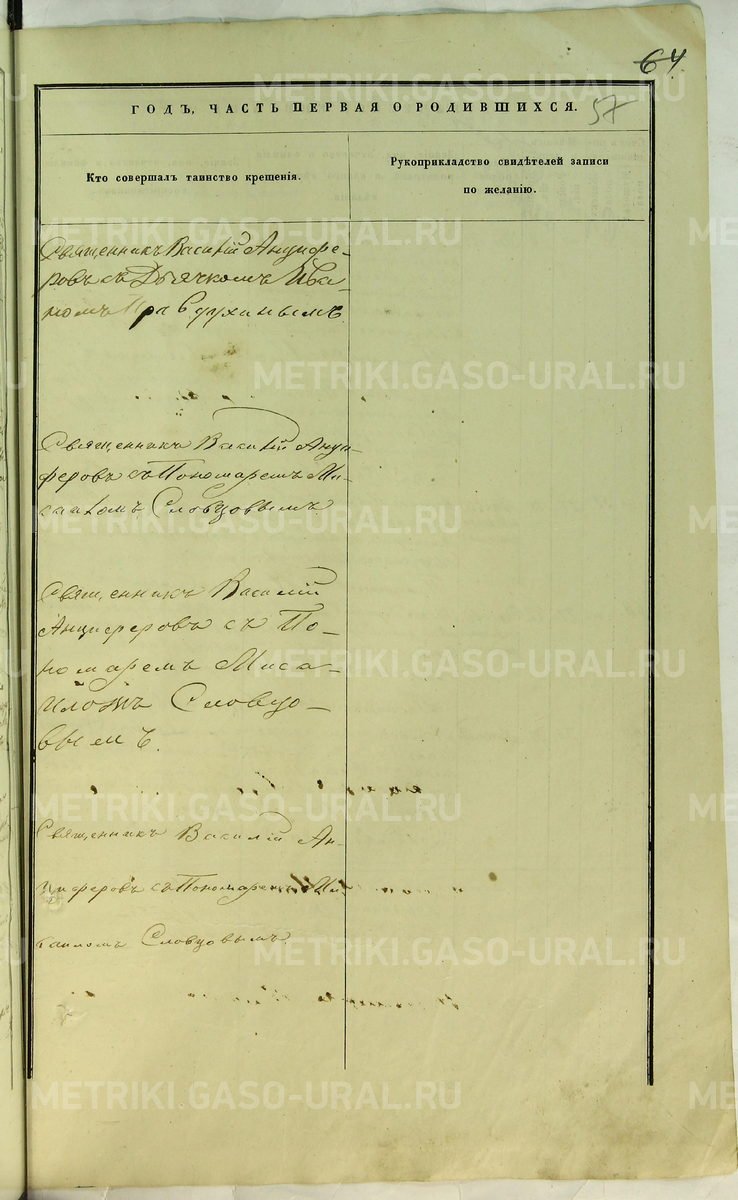 64
ГОДЪ, ЧАСТЬ ПЕРВАЯ О РОДИВШИХСЯ.
57
Кто совершалъ таинство крещенія.
Рукоприкладство свидѣтелей записи
по желанію.
Священникъ Василій Анцифе-
ровъ съ Дьячкомъ Ива-
номъ
Священникъ Василій Анци-
феровъ съ Пономаремъ Ми-
саиломъ Словцовымъ
Священникъ Василій
Анциферовъ съ По-
номаремъ Миса-
иломъ Словцо-
вымъ.
Священникъ Василій Ан-
циферовъ съ Пономаремъ Ми-
саиломъ Словцовымъ.
METRIKI.GASO-URAL.RU